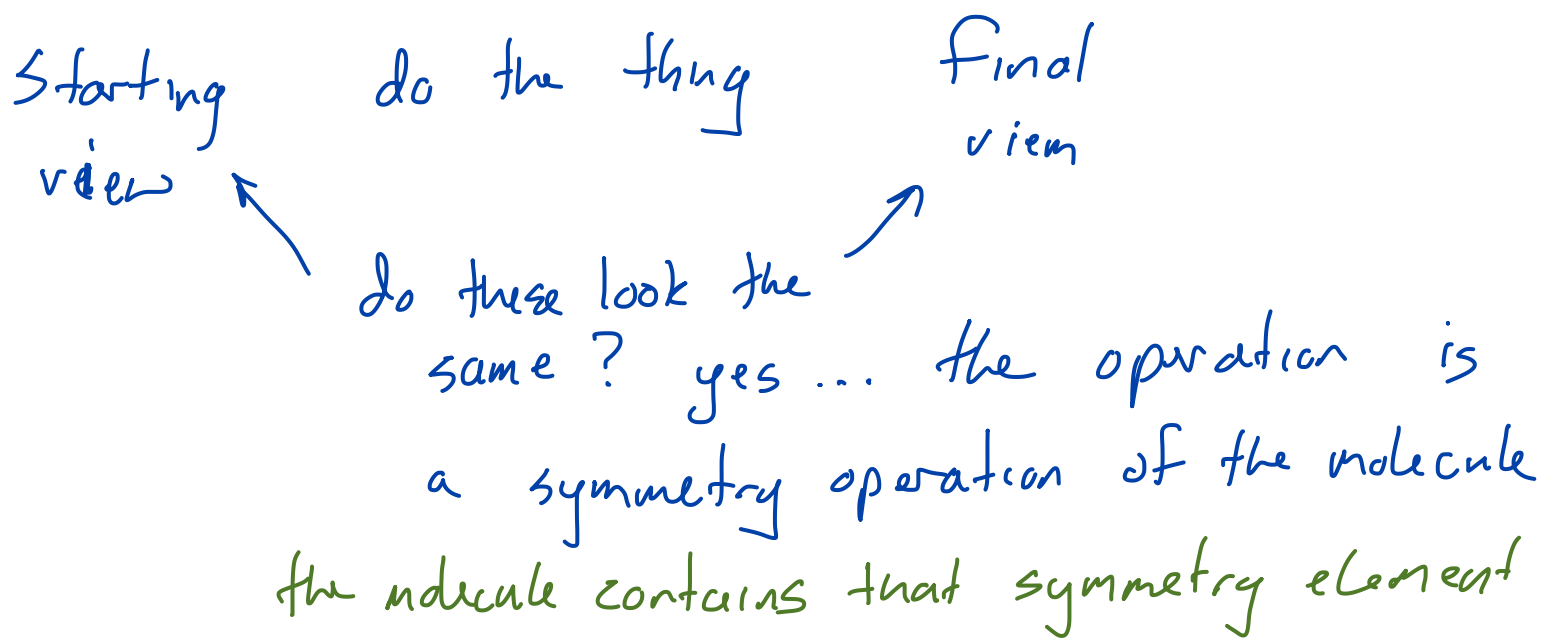 Starting do the thing final
view view
do these look the
same? yes... the operation is
a symmetry operation of the molecule
the molecule contains that symmetry element